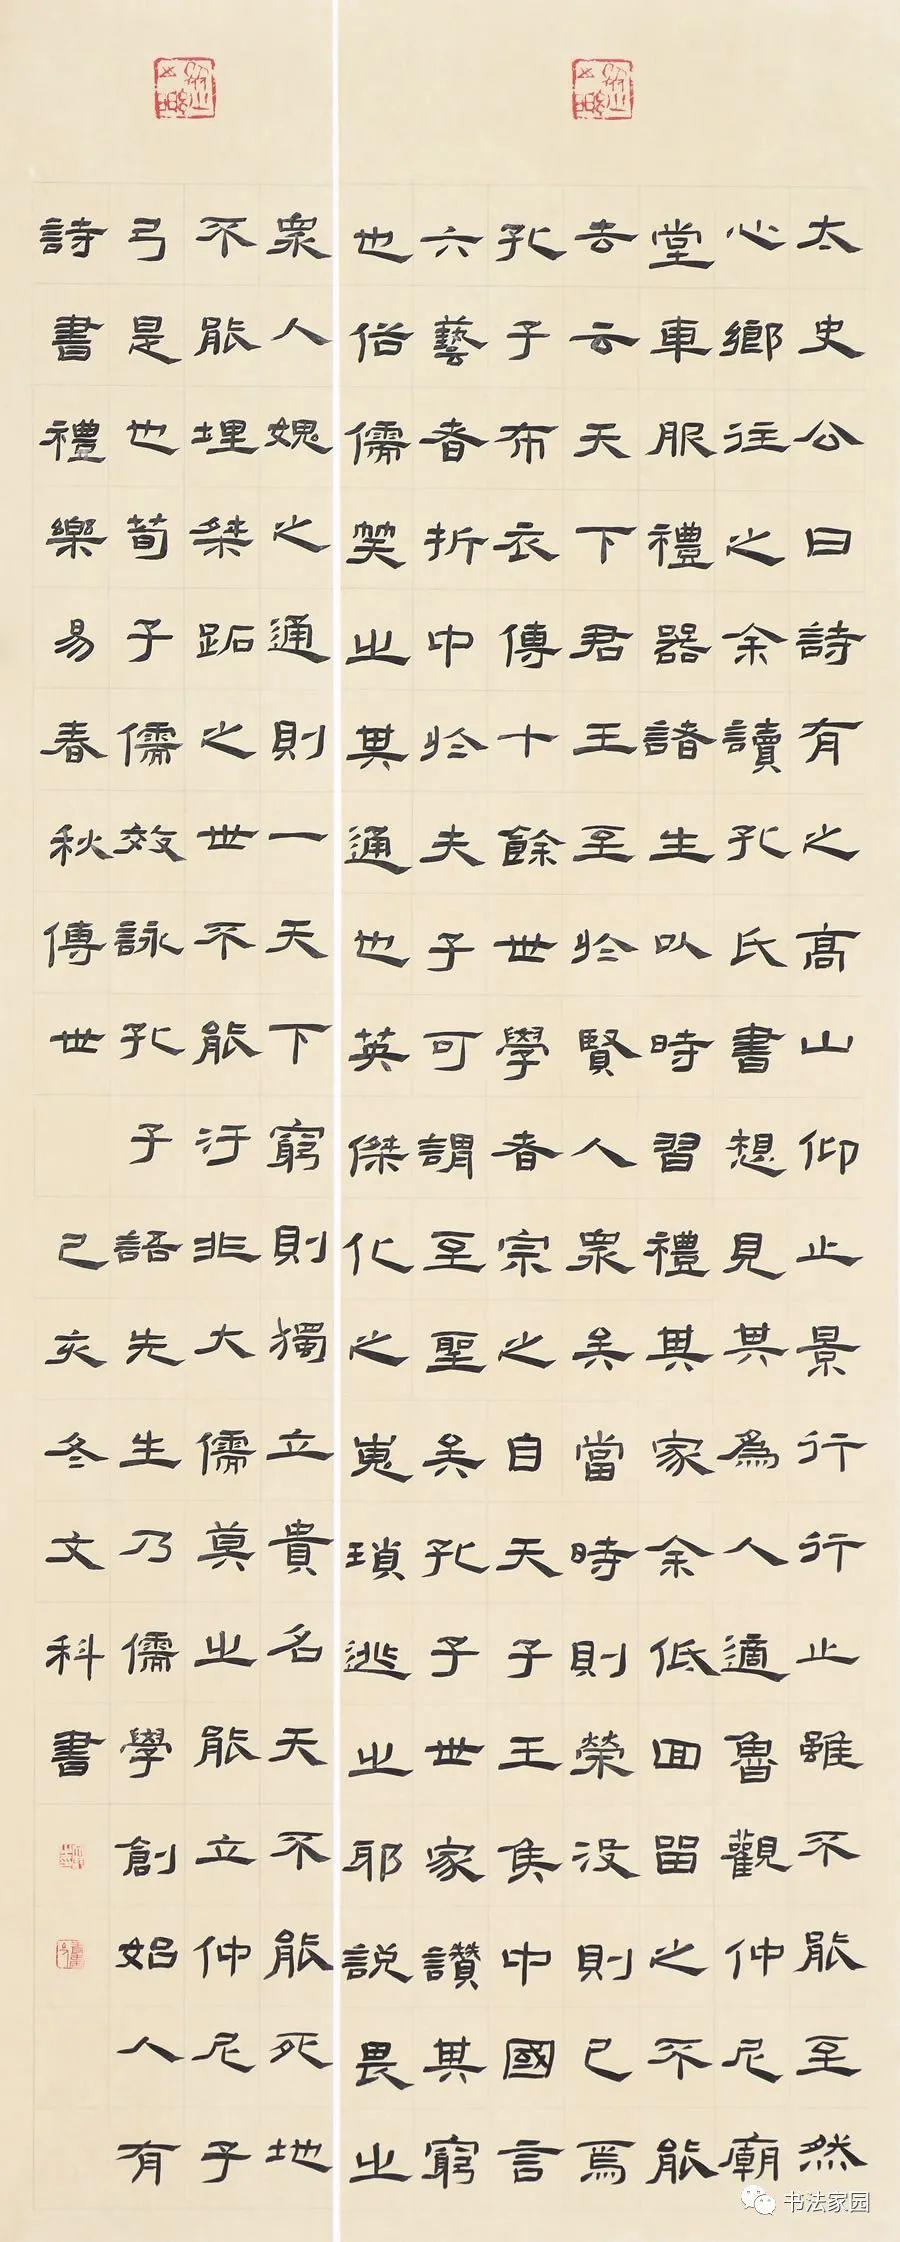 太史公曰詩有之高山仰止景行行止雖不能至然
心鄉往之余讀孔氏書想見其爲人適魯觀仲尼廟
堂車服禮器諸生以時習禮其家余低回留之不能
去云天下君王至於賢人衆矣當時則榮没則已焉
孔子布衣傳十餘世學者宗之自天子王侯中國言
六藝者折中於夫子可謂至聖矣孔子世家讚其窮
也俗儒笑之其通也英傑化之嵬瑣逃之耶説畏之
衆人媿之通則一天下窮則獨立貴名天不能死地
不能埋桀跖之世不能汙非大儒莫之能立仲尼子
弓是也荀子儒效詠孔子語先生乃儒學創始人有
詩書禮樂易春秋傳世 己亥冬文科書
书法家园